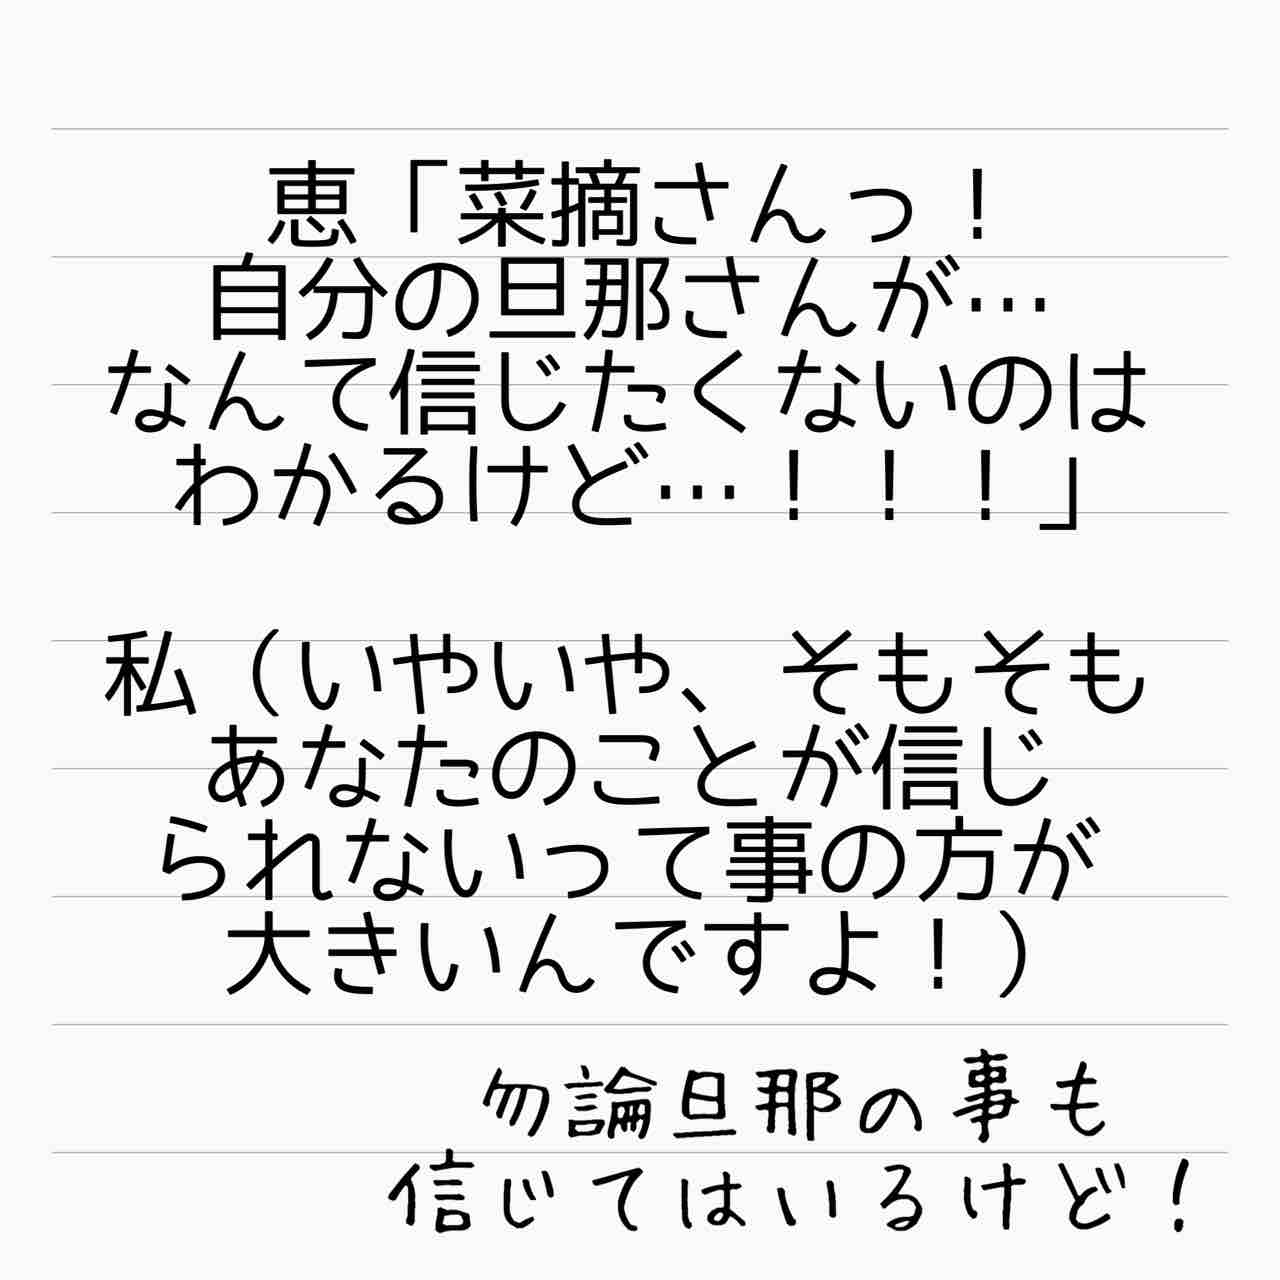 恵「菜摘さんっ！
自分の旦那さんが…
なんて信じたくないのは
わかるけど…！！！」
私（いやいや、そもそも
あなたのことが信じ
られないって事の方が
大きいんですよ！）
勿論旦那の事も
信じてはいるけど！